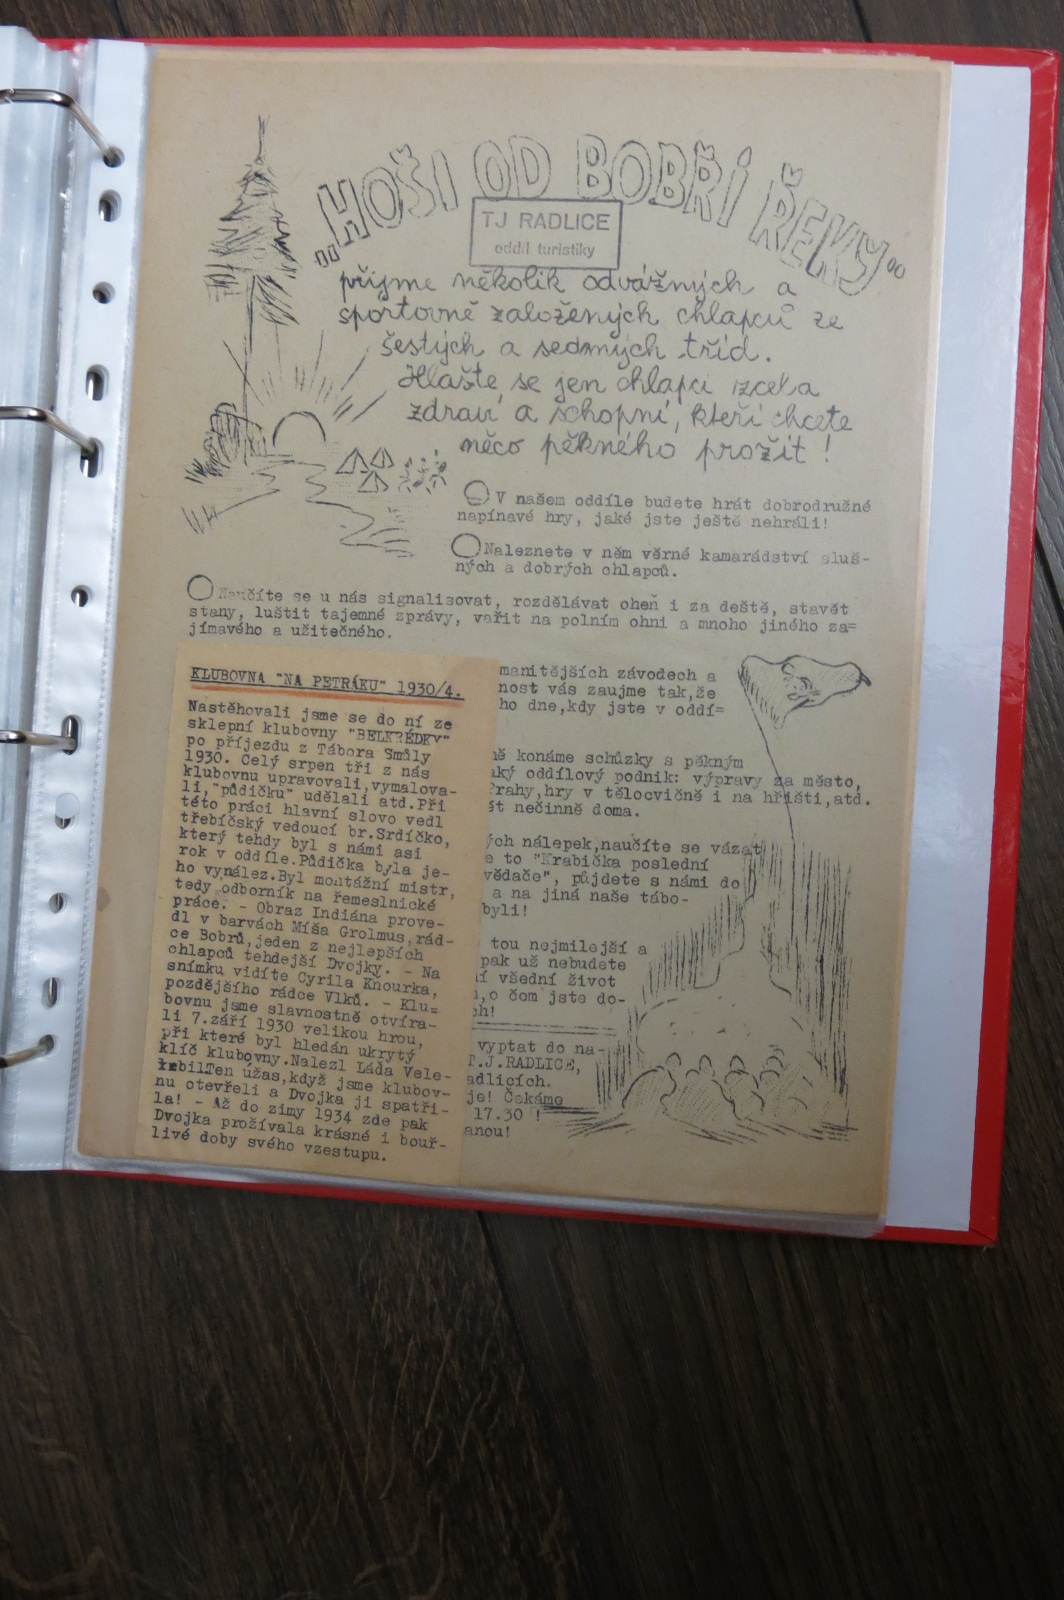 „HOŠI OD BOBŘÍ ŘEKY“
TJ RADLICE
oddíl turistiky
přijme několik odvážných a
sportovně založených chlapců ze
šestých a sedmých tříd.
Hlašte se jen chlapci zcela
zdraví a schopní, kteří chcete
něco pěkného prožít!
V našem oddíle budete hrát dobrodružné
napínavé hry, jaké jste ještě nehráli!
Naleznete v něm věrné kamarádství sluš-
ných a dobrých chlapců.
Naučíte se u nás signalisovat, rozdělávat oheň i za deště, stavět
stany, luštit tajemné zprávy, vařit na polním ohni a mnoho jiného za=
jímavého a užitečného.
manitějších závodech a
nost vás zaujme tak,že
ho dne,kdy jste v oddí=
ně konáme schůzky s pěkným
aký oddílový podnik: výpravy za město,
Prahy,hry v tělocvičně i na hřišti,atd.
ět nečinně doma.
ých nálepek,naučíte se vázat
e to "Krabička poslední
vědače", půjdete s námi do
a na jiná naše tábo-
byli!
tou nejmilejší a
pak už nebudete
ní všední život
,o čem jste do-
ch!
vyptat do na-
T.J.RADLICE,
adlicích.
je! Čekáme
17.30 !
anou!
KLUBOVNA "NA PETRÁKU" 1930/4.
Nastěhovali jsme se do ní ze
sklepní klubovny "BELKRÉDKY"
po příjezdu z Tábora Smůly
1930. Celý srpen tři z nás
klubovnu upravovali,vymalova-
li,"půdičku" udělali atd.Při
této práci hlavní slovo vedl
třebíčský vedoucí br.Srdíčko,
který tehdy byl s námi asi
rok v oddíle.Půdička byla je-
ho vynález.Byl montážní mistr,
tedy odborník na řemeslnické
práce. - Obraz Indiána prove-
dl v barvách Míša Grolmus,rád-
ce Bobrů,jeden z nejlepších
chlapců tehdejší Dvojky. - Na
snímku vidíte Cyrila Knourka,
pozdějšího rádce Vlků. - Klu=
bovnu jsme slavnostně otvíra-
li 7.září 1930 velikou hrou,
při které byl hledán ukrytý
klíč klubovny.Nalezl Láda Vele-
bil.Ten úžas,když jsme klubov-
nu otevřeli a Dvojka ji spatři-
la! - Až do zimy 1934 zde pak
Dvojka prožívala krásné i bouř-
livé doby svého vzestupu.